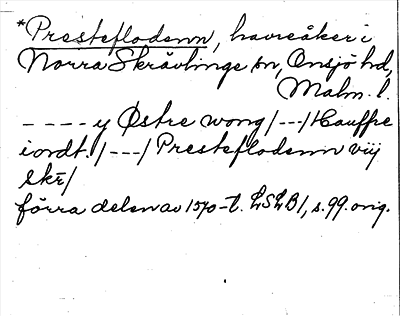 *Prestefloden̄n, havreåker i
Norra Skrävlinge sn, Onsjö hd,
Malm. l.
- - - - y Østre wong /---/ Hauffre
iordt. /---/ Prestefloden̄n viij
skr̄ /
förra delen av 1570-t. LSLB 1, s. 99. orig.